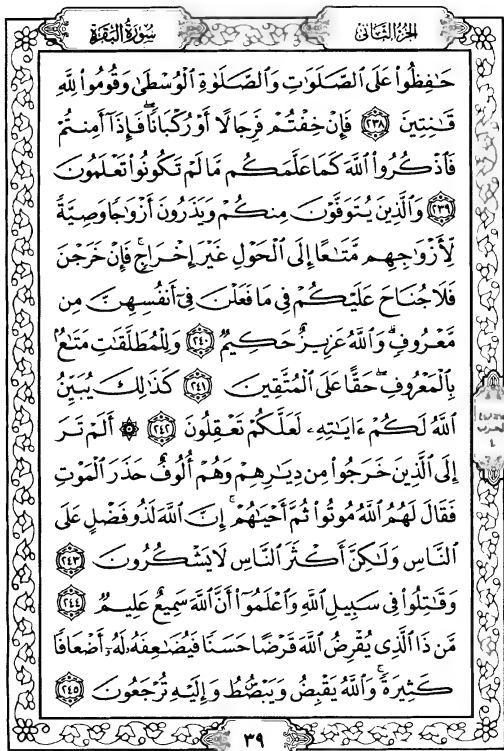 الجزء الثاني
سورة البقرة
حَٰفِظُوا۟ عَلَى ٱلصَّلَوَٰتِ وَٱلصَّلَوٰةِ ٱلْوُسْطَىٰ وَقُومُوا۟ لِلَّهِ
قَٰنِتِينَ ٢٣٨ فَإِنْ خِفْتُمْ فَرِجَالًا أَوْ رُكْبَانًا ۖ فَإِذَآ أَمِنتُمْ
فَٱذْكُرُوا۟ ٱللَّهَ كَمَا عَلَّمَكُم مَّا لَمْ تَكُونُوا۟ تَعْلَمُونَ
٢٣٩ وَٱلَّذِينَ يُتَوَفَّوْنَ مِنكُمْ وَيَذَرُونَ أَزْوَٰجًا وَصِيَّةً
لِّأَزْوَٰجِهِم مَّتَٰعًا إِلَى ٱلْحَوْلِ غَيْرَ إِخْرَاجٍ ۚ فَإِنْ خَرَجْنَ
فَلَا جُنَاحَ عَلَيْكُمْ فِى مَا فَعَلْنَ فِىٓ أَنفُسِهِنَّ مِن
مَّعْرُوفٍ ۗ وَٱللَّهُ عَزِيزٌ حَكِيمٌ ٢٤٠ وَلِلْمُطَلَّقَٰتِ مَتَٰعٌۢ
بِٱلْمَعْرُوفِ ۖ حَقًّا عَلَى ٱلْمُتَّقِينَ ٢٤١ كَذَٰلِكَ يُبَيِّنُ
ٱللَّهُ لَكُمْ ءَايَٰتِهِۦ لَعَلَّكُمْ تَعْقِلُونَ ٢٤٢ ۞ أَلَمْ تَرَ
إِلَى ٱلَّذِينَ خَرَجُوا۟ مِن دِيَٰرِهِمْ وَهُمْ أُلُوفٌ حَذَرَ ٱلْمَوْتِ
فَقَالَ لَهُمُ ٱللَّهُ مُوتُوا۟ ثُمَّ أَحْيَٰهُمْ ۚ إِنَّ ٱللَّهَ لَذُو فَضْلٍ عَلَى
ٱلنَّاسِ وَلَٰكِنَّ أَكْثَرَ ٱلنَّاسِ لَا يَشْكُرُونَ ٢٤٣
وَقَٰتِلُوا۟ فِى سَبِيلِ ٱللَّهِ وَٱعْلَمُوٓا۟ أَنَّ ٱللَّهَ سَمِيعٌ عَلِيمٌ ٢٤٤
مَّن ذَا ٱلَّذِى يُقْرِضُ ٱللَّهَ قَرْضًا حَسَنًا فَيُضَٰعِفَهُۥ لَهُۥٓ أَضْعَافًا
كَثِيرَةً ۚ وَٱللَّهُ يَقْبِضُ وَيَبْصُۜطُ وَإِلَيْهِ تُرْجَعُونَ ٢٤٥
٣٩